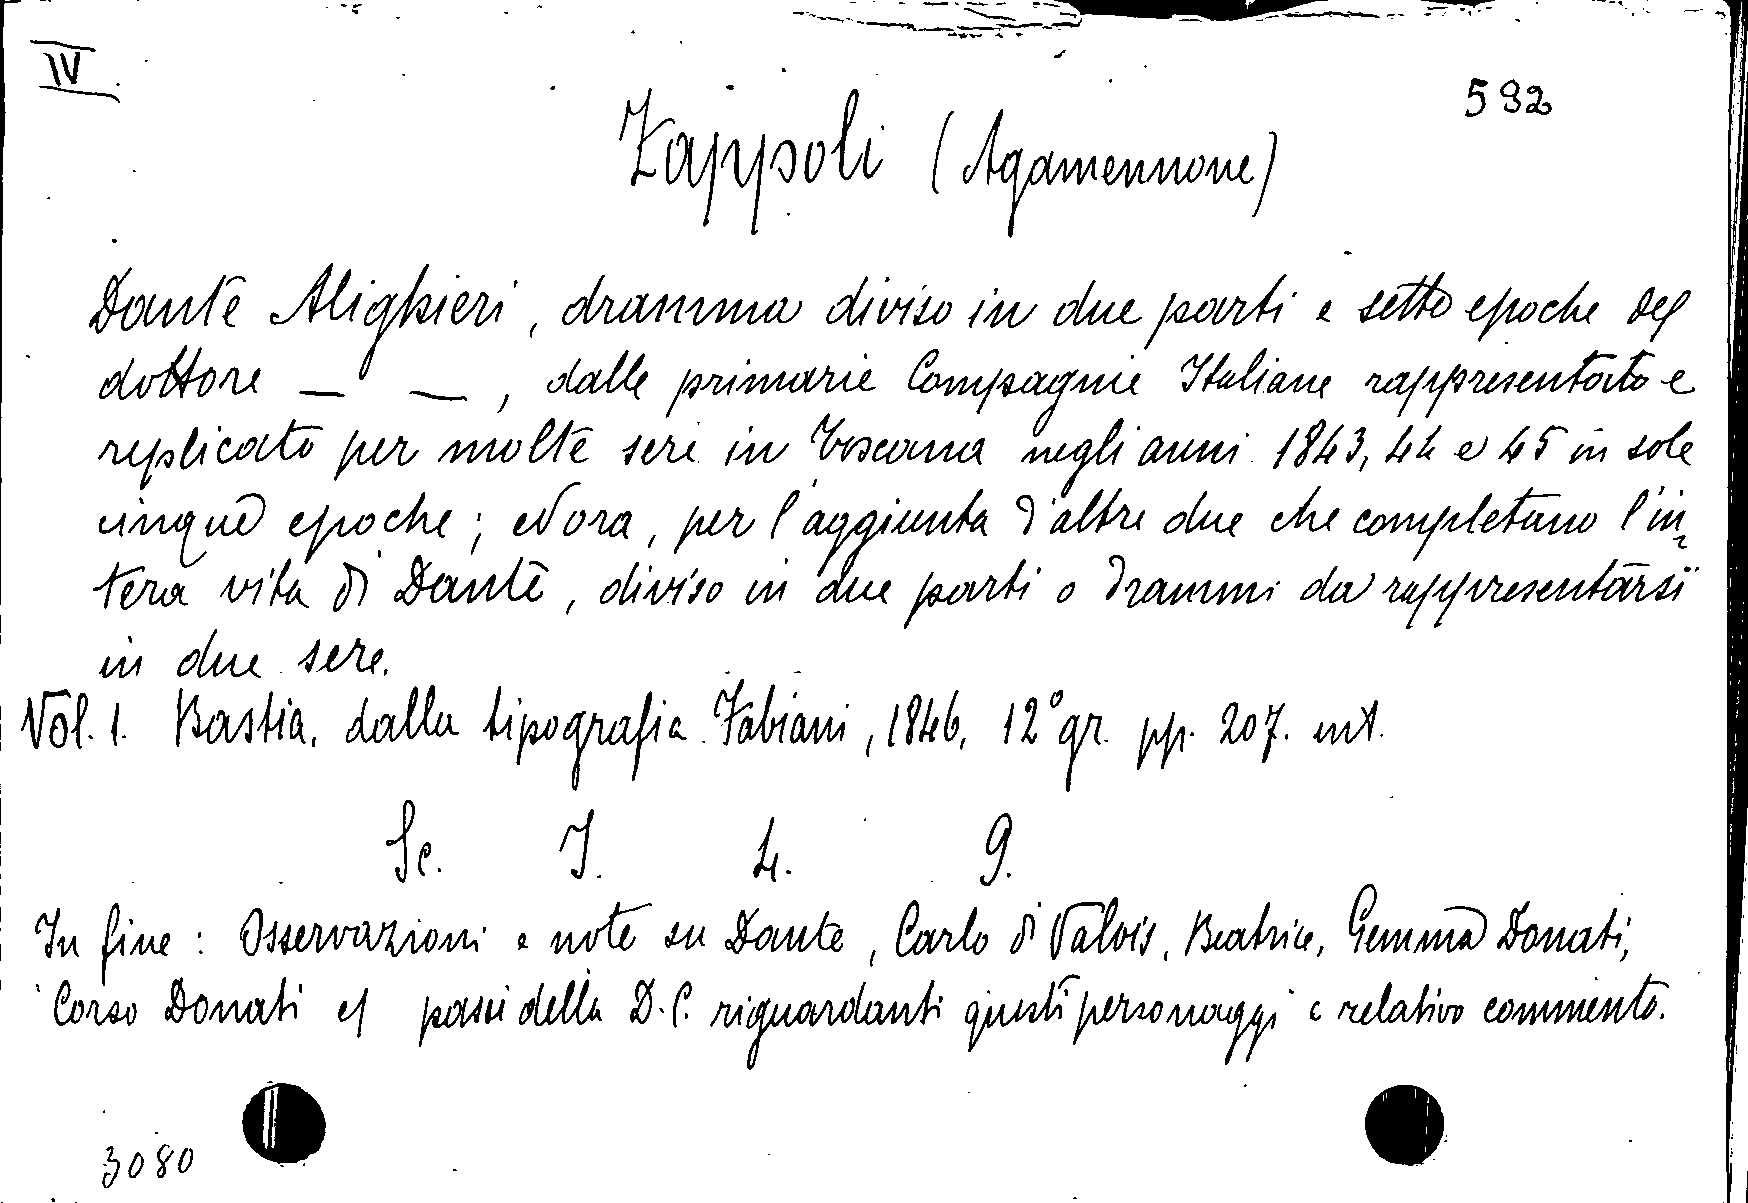 IV
592
Zappoli (Agamennone)
Dante Alighieri, dramma diviso in due parti e sette epoche del
dottore — —, dalle primarie Compagnie Italiane rappresentato e
replicato per molte sere in Toscana negli anni 1843, 44 e 45 in sole
cinque epoche; ed ora, per l'aggiunta d'altre due che completano l'in-
tera vita di Dante, diviso in due parti o drammi da rappresentarsi
in due sere.
Vol. 1. Bastia, dalla tipografia Fabiani, 1846, 12° gr. pp. 207. int.
Sc. I. 4. 9.
In fine: Osservazioni e note su Dante, Carlo di Valois, Beatrice, Gemma Donati,
Corso Donati e passi della D.C. riguardanti questi personaggi e relativo commento.
3080